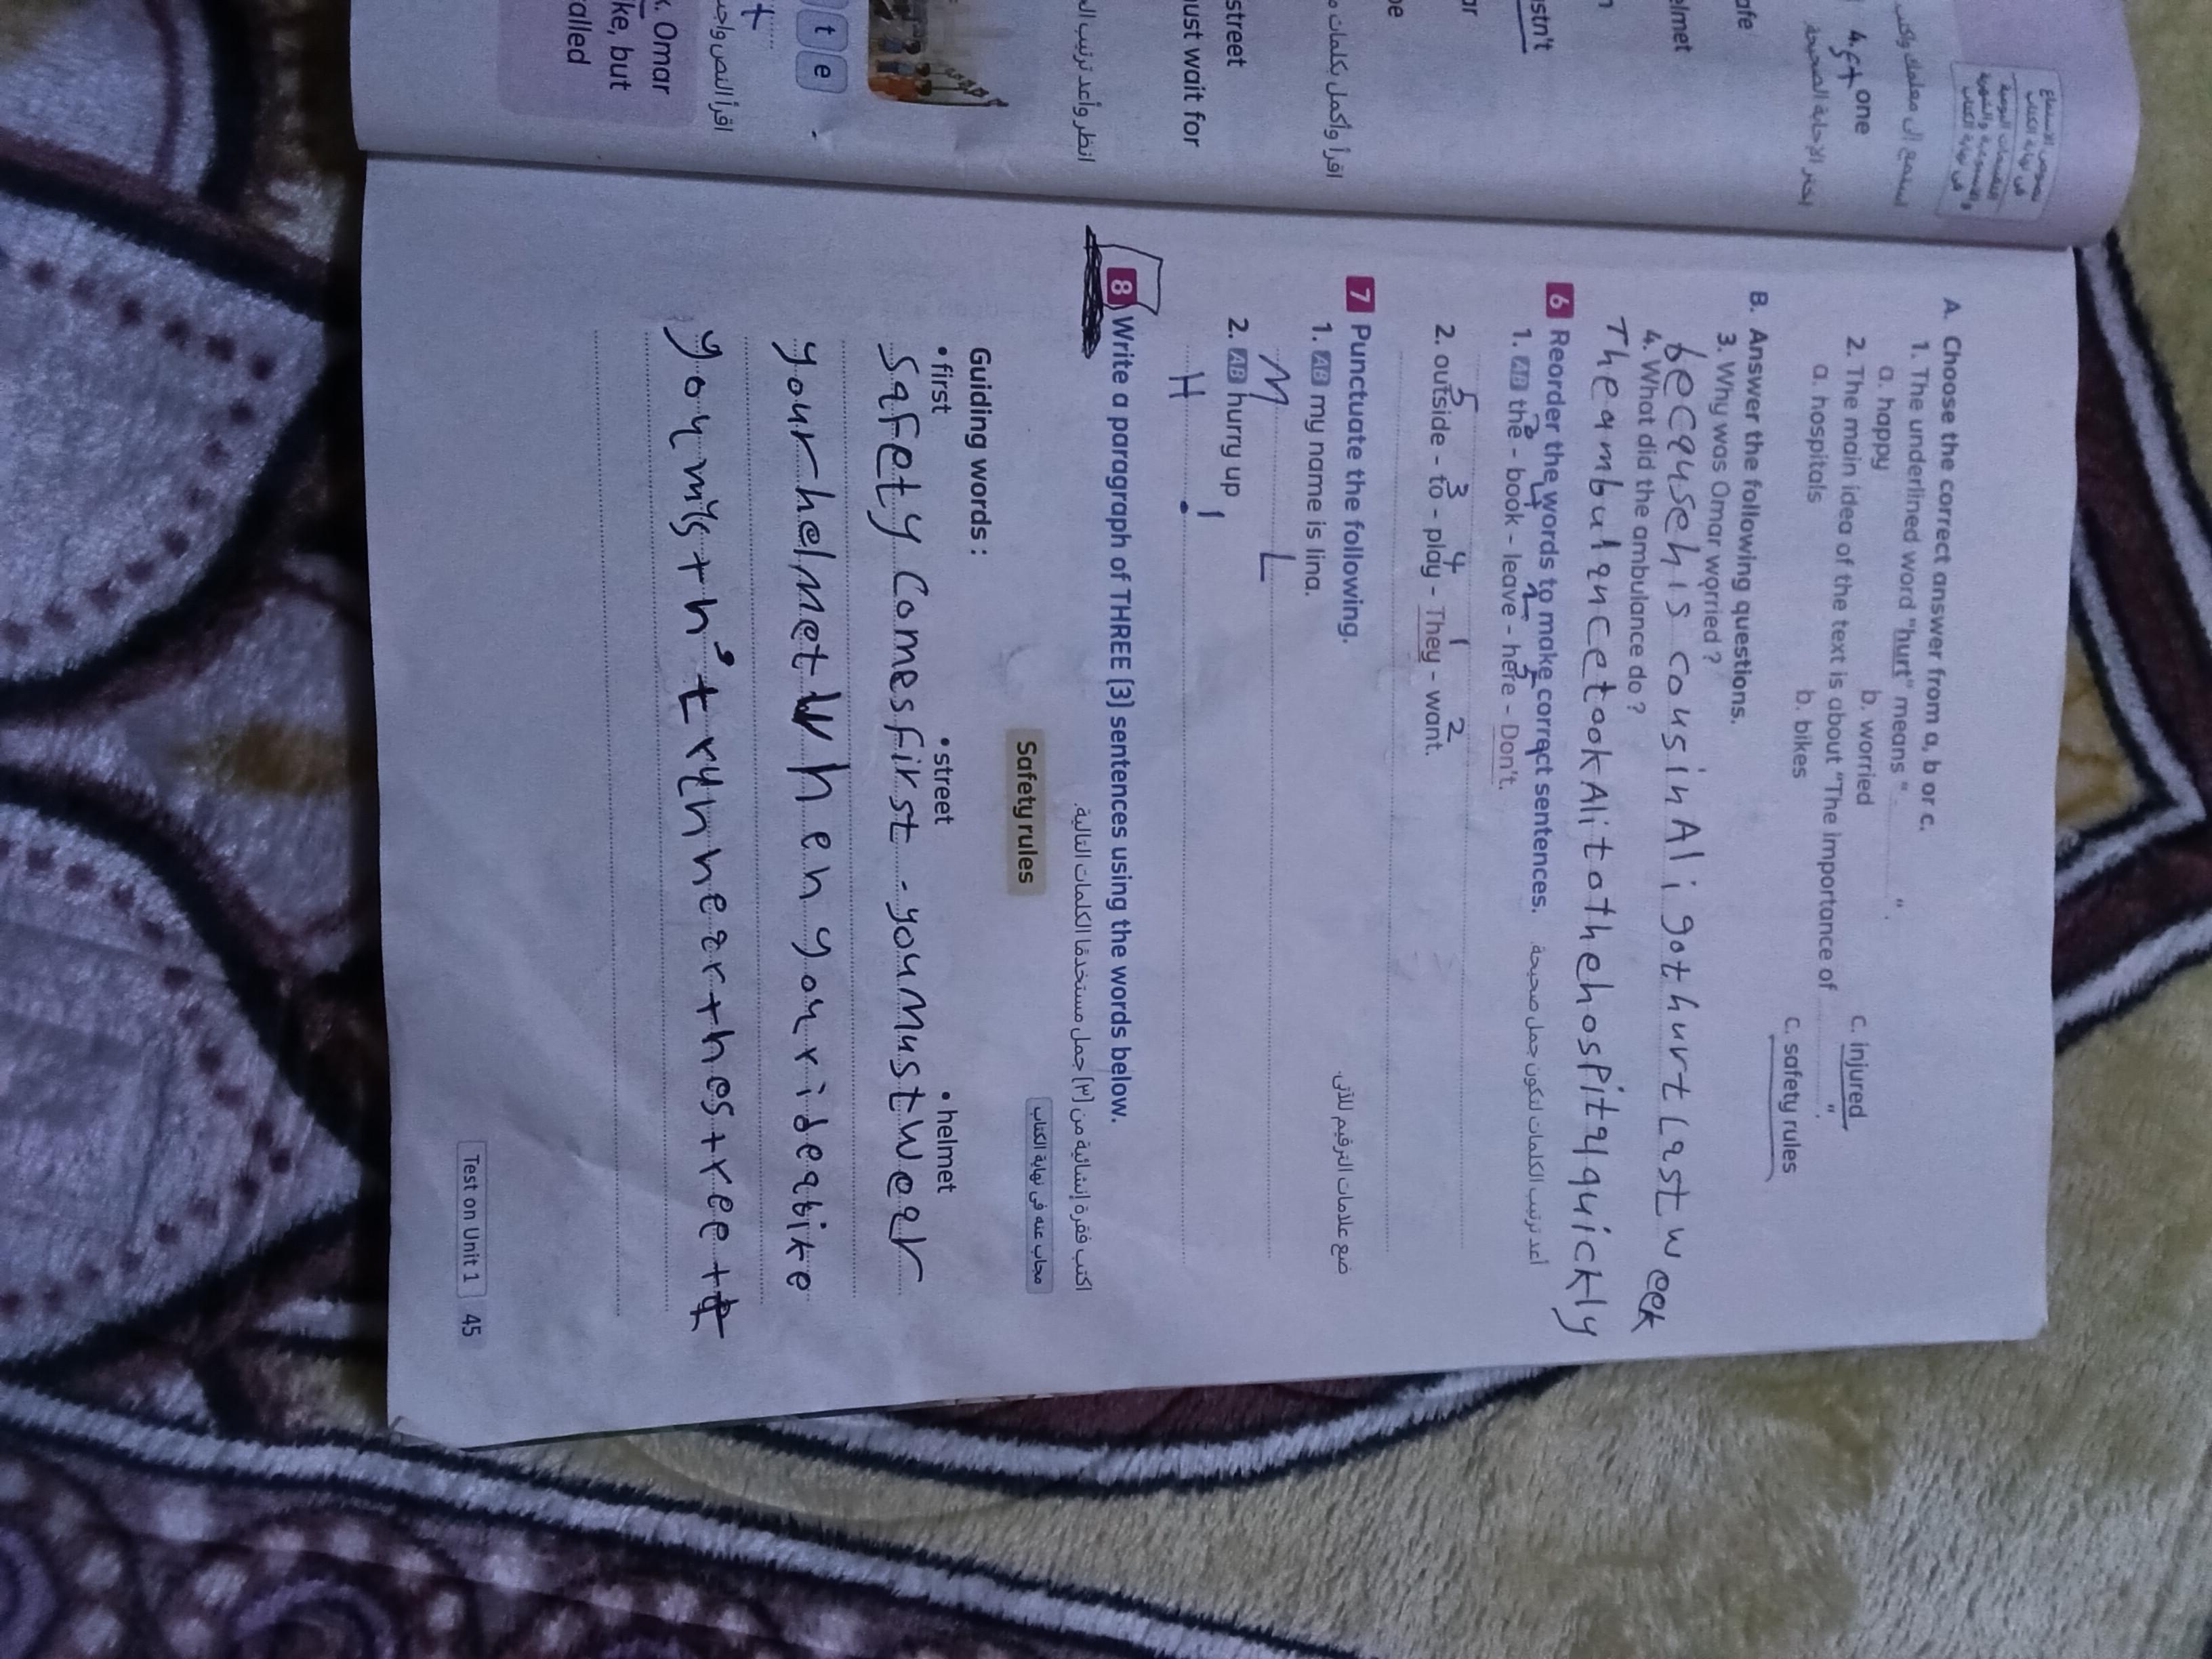 A. Choose the correct answer from a, b or c.
1. The underlined word "hurt" means " ".
a. happy b. worried c. injured
2. The main idea of the text is about "The importance of ".
a. hospitals b. bikes c. safety rules
B. Answer the following questions.
3. Why was Omar worried ?
because his cousin Ali got hurt Last week
4. What did the ambulance do ?
The ambulance took Ali to the hospital quickly
6 Reorder the words to make correct sentences. أعد ترتيب الكلمات لتكون جمل صحيحة
1. AB the - book - leave - here - Don't.
5 3 4 1 2
2. outside - to - play - They - want.
7 Punctuate the following. ضع علامات الترقيم للآتى.
1. AB my name is lina.
M L
2. AB hurry up
H !
8 Write a paragraph of THREE (3) sentences using the words below.
اكتب فقرة إنشائية من (٣) جمل مستخدمًا الكلمات التالية.
Safety rules
مجاب عنه فى نهاية الكتاب
Guiding words :
• first • street • helmet
Safety comes first. you Must wear
your helmet when you ride a bike
you mustn't run near the street
Test on Unit 1 45
4. one
afe
elmet
stn't
ar
be
اقرأ وأكمل بكلمات
street
ust wait for
انظر وأعد ترتيب
t e
اقرأ النص
. Omar
ke, but
alled